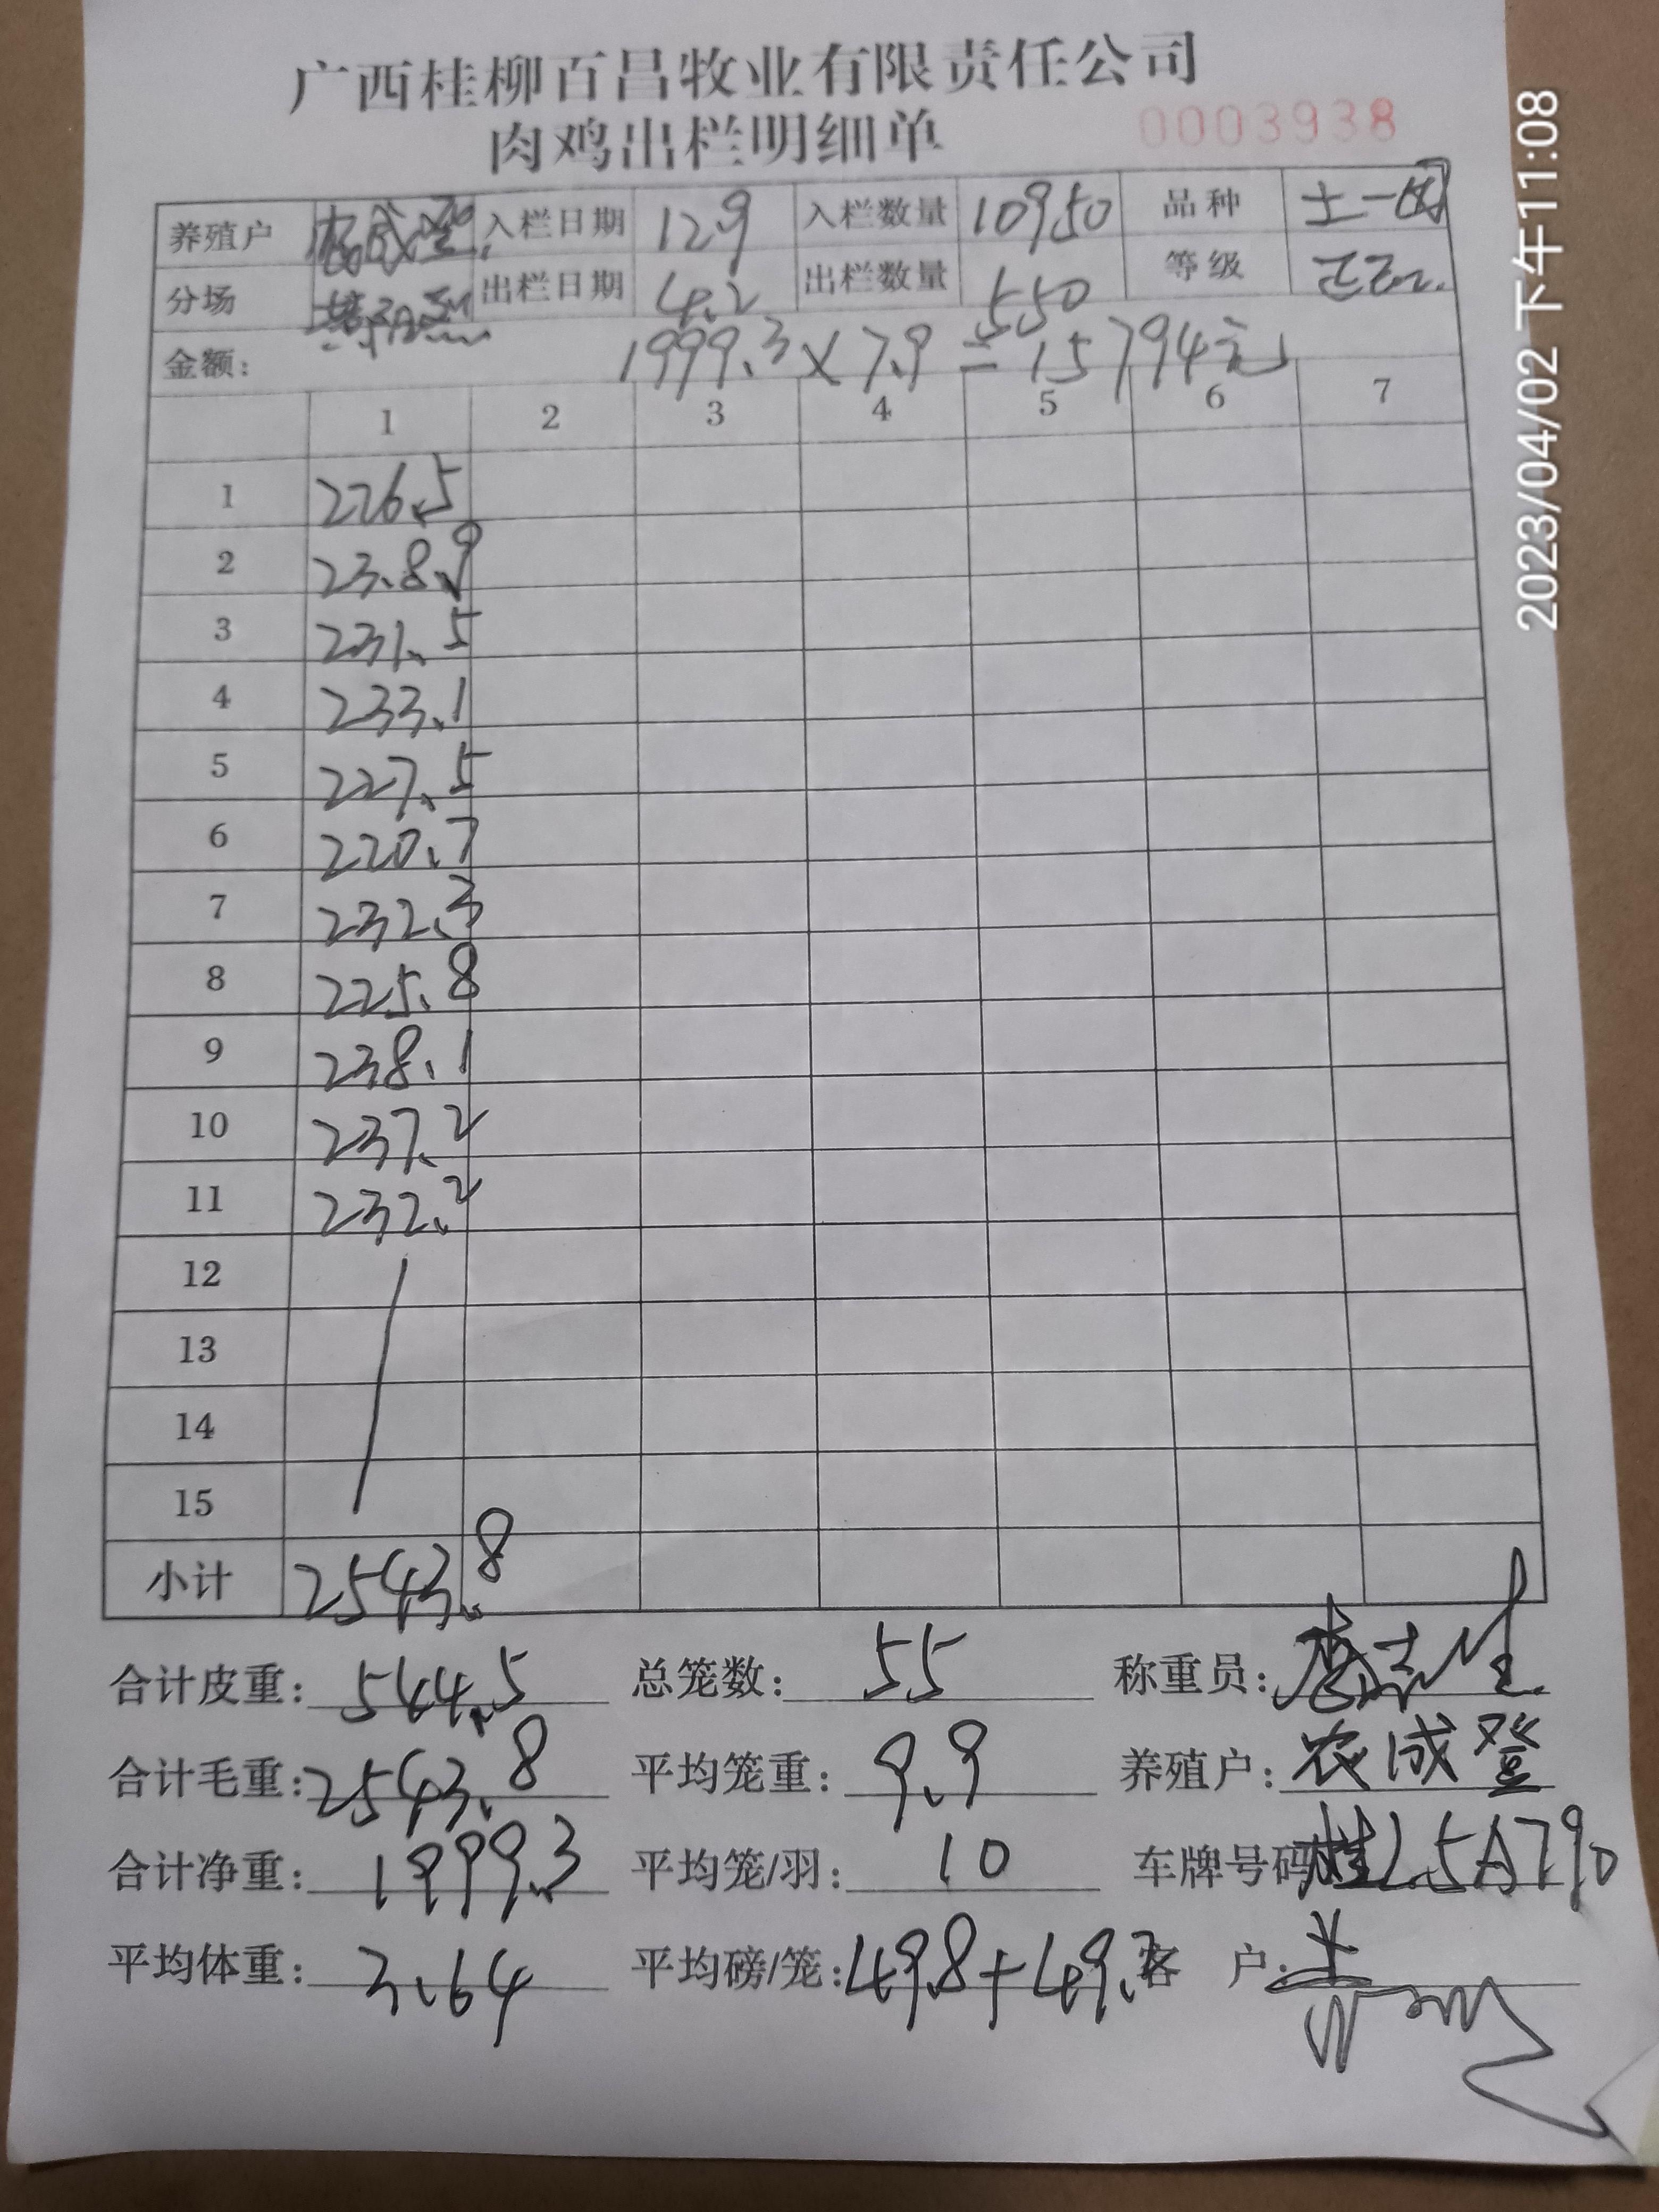 广西桂柳百昌牧业有限责任公司
肉鸡出栏明细单 0003938
养殖户 入栏日期 12.9 入栏数量 10950 品种 土一
分场 出栏日期 4.2 出栏数量 550 等级
金额: 1999.3×7.9=15794元
1 2 3 4 5 6 7
1 226.5
2 23.8.9
3 231.5
4 233.1
5 227.5
6 220.7
7 232.3
8 225.8
9 238.1
10 237.2
11 232.2
12
13
14
15
小计 2543.8
合计皮重: 544.5 总笼数: 55 称重员:
合计毛重: 2543.8 平均笼重: 9.9 养殖户: 农成登
合计净重: 1999.3 平均笼/羽: 10 车牌号码 桂L5A790
平均体重: 3.64 平均磅/笼: 49.8+49. 客户:
2023/04/02 下午11:08